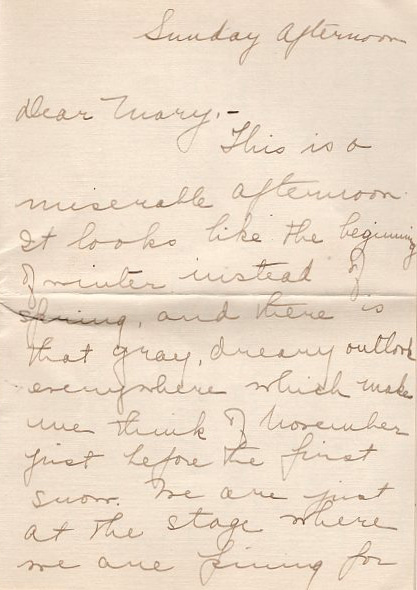 Sunday afternoon
Dear Mary,-
This is a
miserable afternoon.
It looks like the beginning
of winter instead of
spring, and there is
that gray, dreary outlook
everywhere which make
me think of November
just before the first
snow. We are just
at the stage where
we are pining for